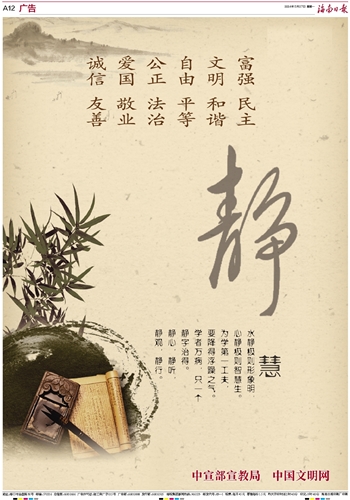 A12 广告
海南日报
富强 民主
文明 和谐
自由 平等
公正 法治
爱国 敬业
诚信 友善
静
慧
水静极则形象明，
心静极则智慧生。
为学第一工夫，
要降得浮躁之气。
学者万病，只一个
静字治得。
静心 静听，
静观 静行。
中宣部宣教局 中国文明网